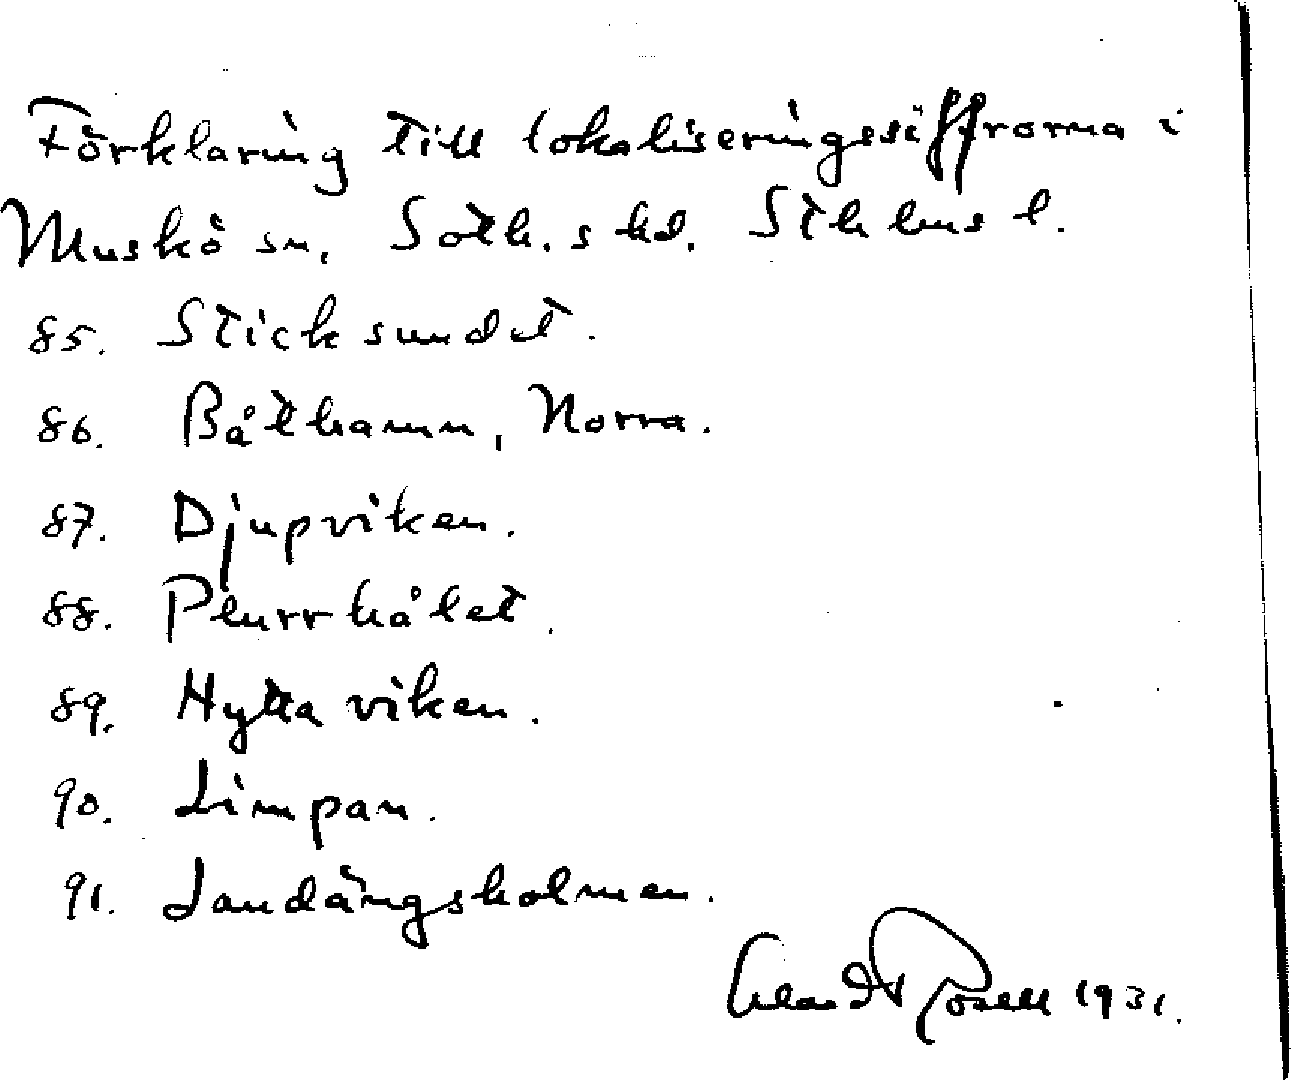 Förklaring till lokaliseringssiffrorna i
Muskö sn, Soth. s hd. Sthlms l.
85. Sticksundet.
86. Båthamn, Norra.
87. Djupviken.
88. Plurrhålet.
89. Hyttaviken.
90. Limpan.
91. Landängsholmen.
Rosell 1931.